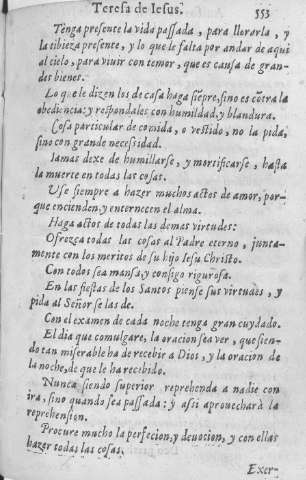 Teresa de Iesus. 553
Tẽga presente la vida passada, para llorarla, y
la tibieza presente, y lo que le falta por andar de aqui
al cielo, para viuir con temor, que es causa de gran-
des bienes.
Lo que le dizen los de casa haga siẽpre, sino es cõtra la
obediencia: y respondales con humildad, y blandura.
Cosa particular de comida, o vestido, no la pida,
sino con grande necessidad.
Iamas dexe de humillarse, y mortificarse, hasta
la muerte en todas las cosas.
Vse siempre a hazer muchos actos de amor, por-
que encienden, y enternecen el alma.
Haga actos de todas las demas virtudes:
Ofrezca todas las cosas al Padre eterno, junta-
mente con los meritos de su hijo Iesu Christo.
Con todos sea mansa, y consigo rigurosa.
En las fiestas de los Santos piense sus virtudes, y
pida al Señor se las de.
Con el examen de cada noche tenga gran cuydado.
El dia que comulgare, la oracion sea ver, que sien-
do tan miserable ha de recebir a Dios, y la oracion de
la noche, de que le ha recebido.
Nunca siendo superior reprehenda a nadie con
ira, sino quando sea passada: y assi aprouecharà la
reprehension.
Procure mucho la perfecion, y deuocion, y con ellas
hazer todas las cosas.
Exer-